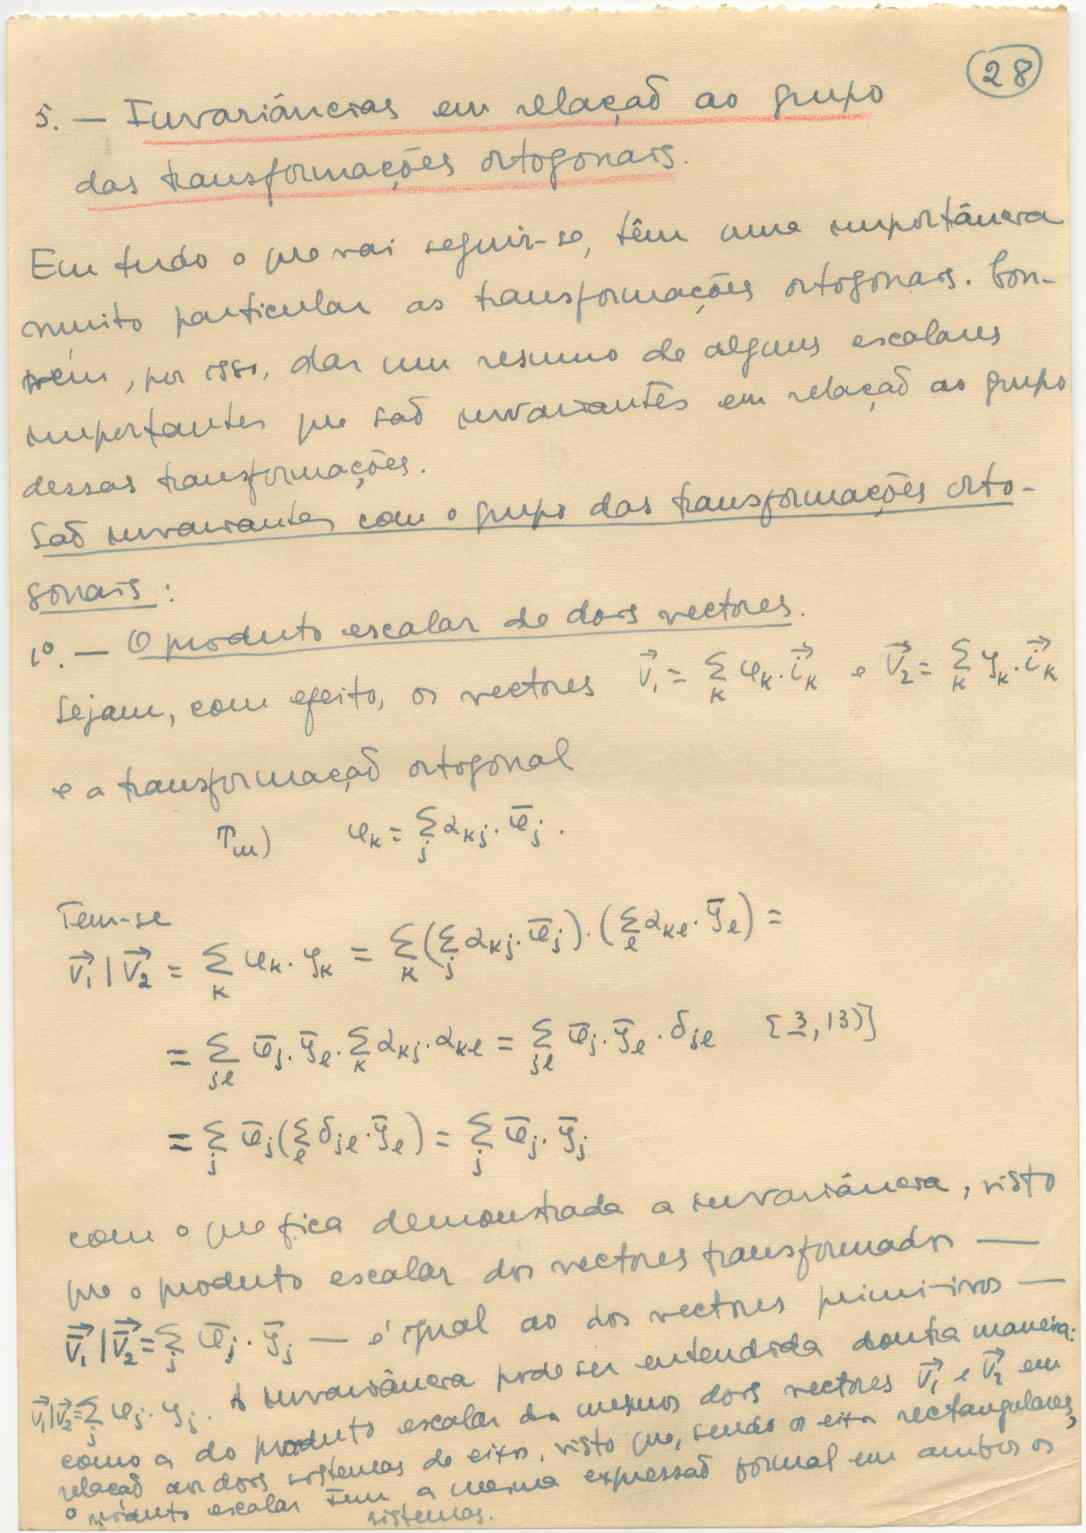 28
5. — Invariâncias em relação ao grupo
das transformações ortogonais.
Em tudo o que vai seguir-se, têm uma importância
muito particular as transformações ortogonais. Con-
vém, por isso, dar um resumo de alguns escalares
importantes que são invariantes em relação ao grupo
dessas transformações.
São invariantes com o grupo das transformações orto-
gonais:
1º. — O produto escalar de dois vectores.
Sejam, com efeito, os vectores v⃗₁ = Σ_k φ_k · i⃗_k e v⃗₂ = Σ_k ψ_k · i⃗_k
e a transformação ortogonal
T_m) φ_k = Σ_j α_kj · φ̄_j .
Tem-se
v⃗₁ | v⃗₂ = Σ_k φ_k · ψ_k = Σ_k (Σ_j α_kj · φ̄_j) · (Σ_l α_kl · ψ̄_l) =
= Σ_jl φ̄_j · ψ̄_l · Σ_k α_kj · α_kl = Σ_jl φ̄_j · ψ̄_l · δ_jl [3, 13)]
= Σ_j φ̄_j (Σ_l δ_jl · ψ̄_l) = Σ_j φ̄_j · ψ̄_j
com o que fica demonstrada a invariância, visto
que o produto escalar dos vectores transformados —
v̄⃗₁ | v̄⃗₂ = Σ_j φ̄_j · ψ̄_j — é igual ao dos vectores primitivos —
v⃗₁ | v⃗₂ = Σ_j φ_j · ψ_j . A invariância pode ser entendida doutra maneira:
como a do produto escalar dos mesmos dois vectores v⃗₁ e v⃗₂ em
relação aos dois sistemas de eixos, visto que, sendo os eixos rectangulares,
o produto escalar tem a mesma expressão formal em ambos os
sistemas.